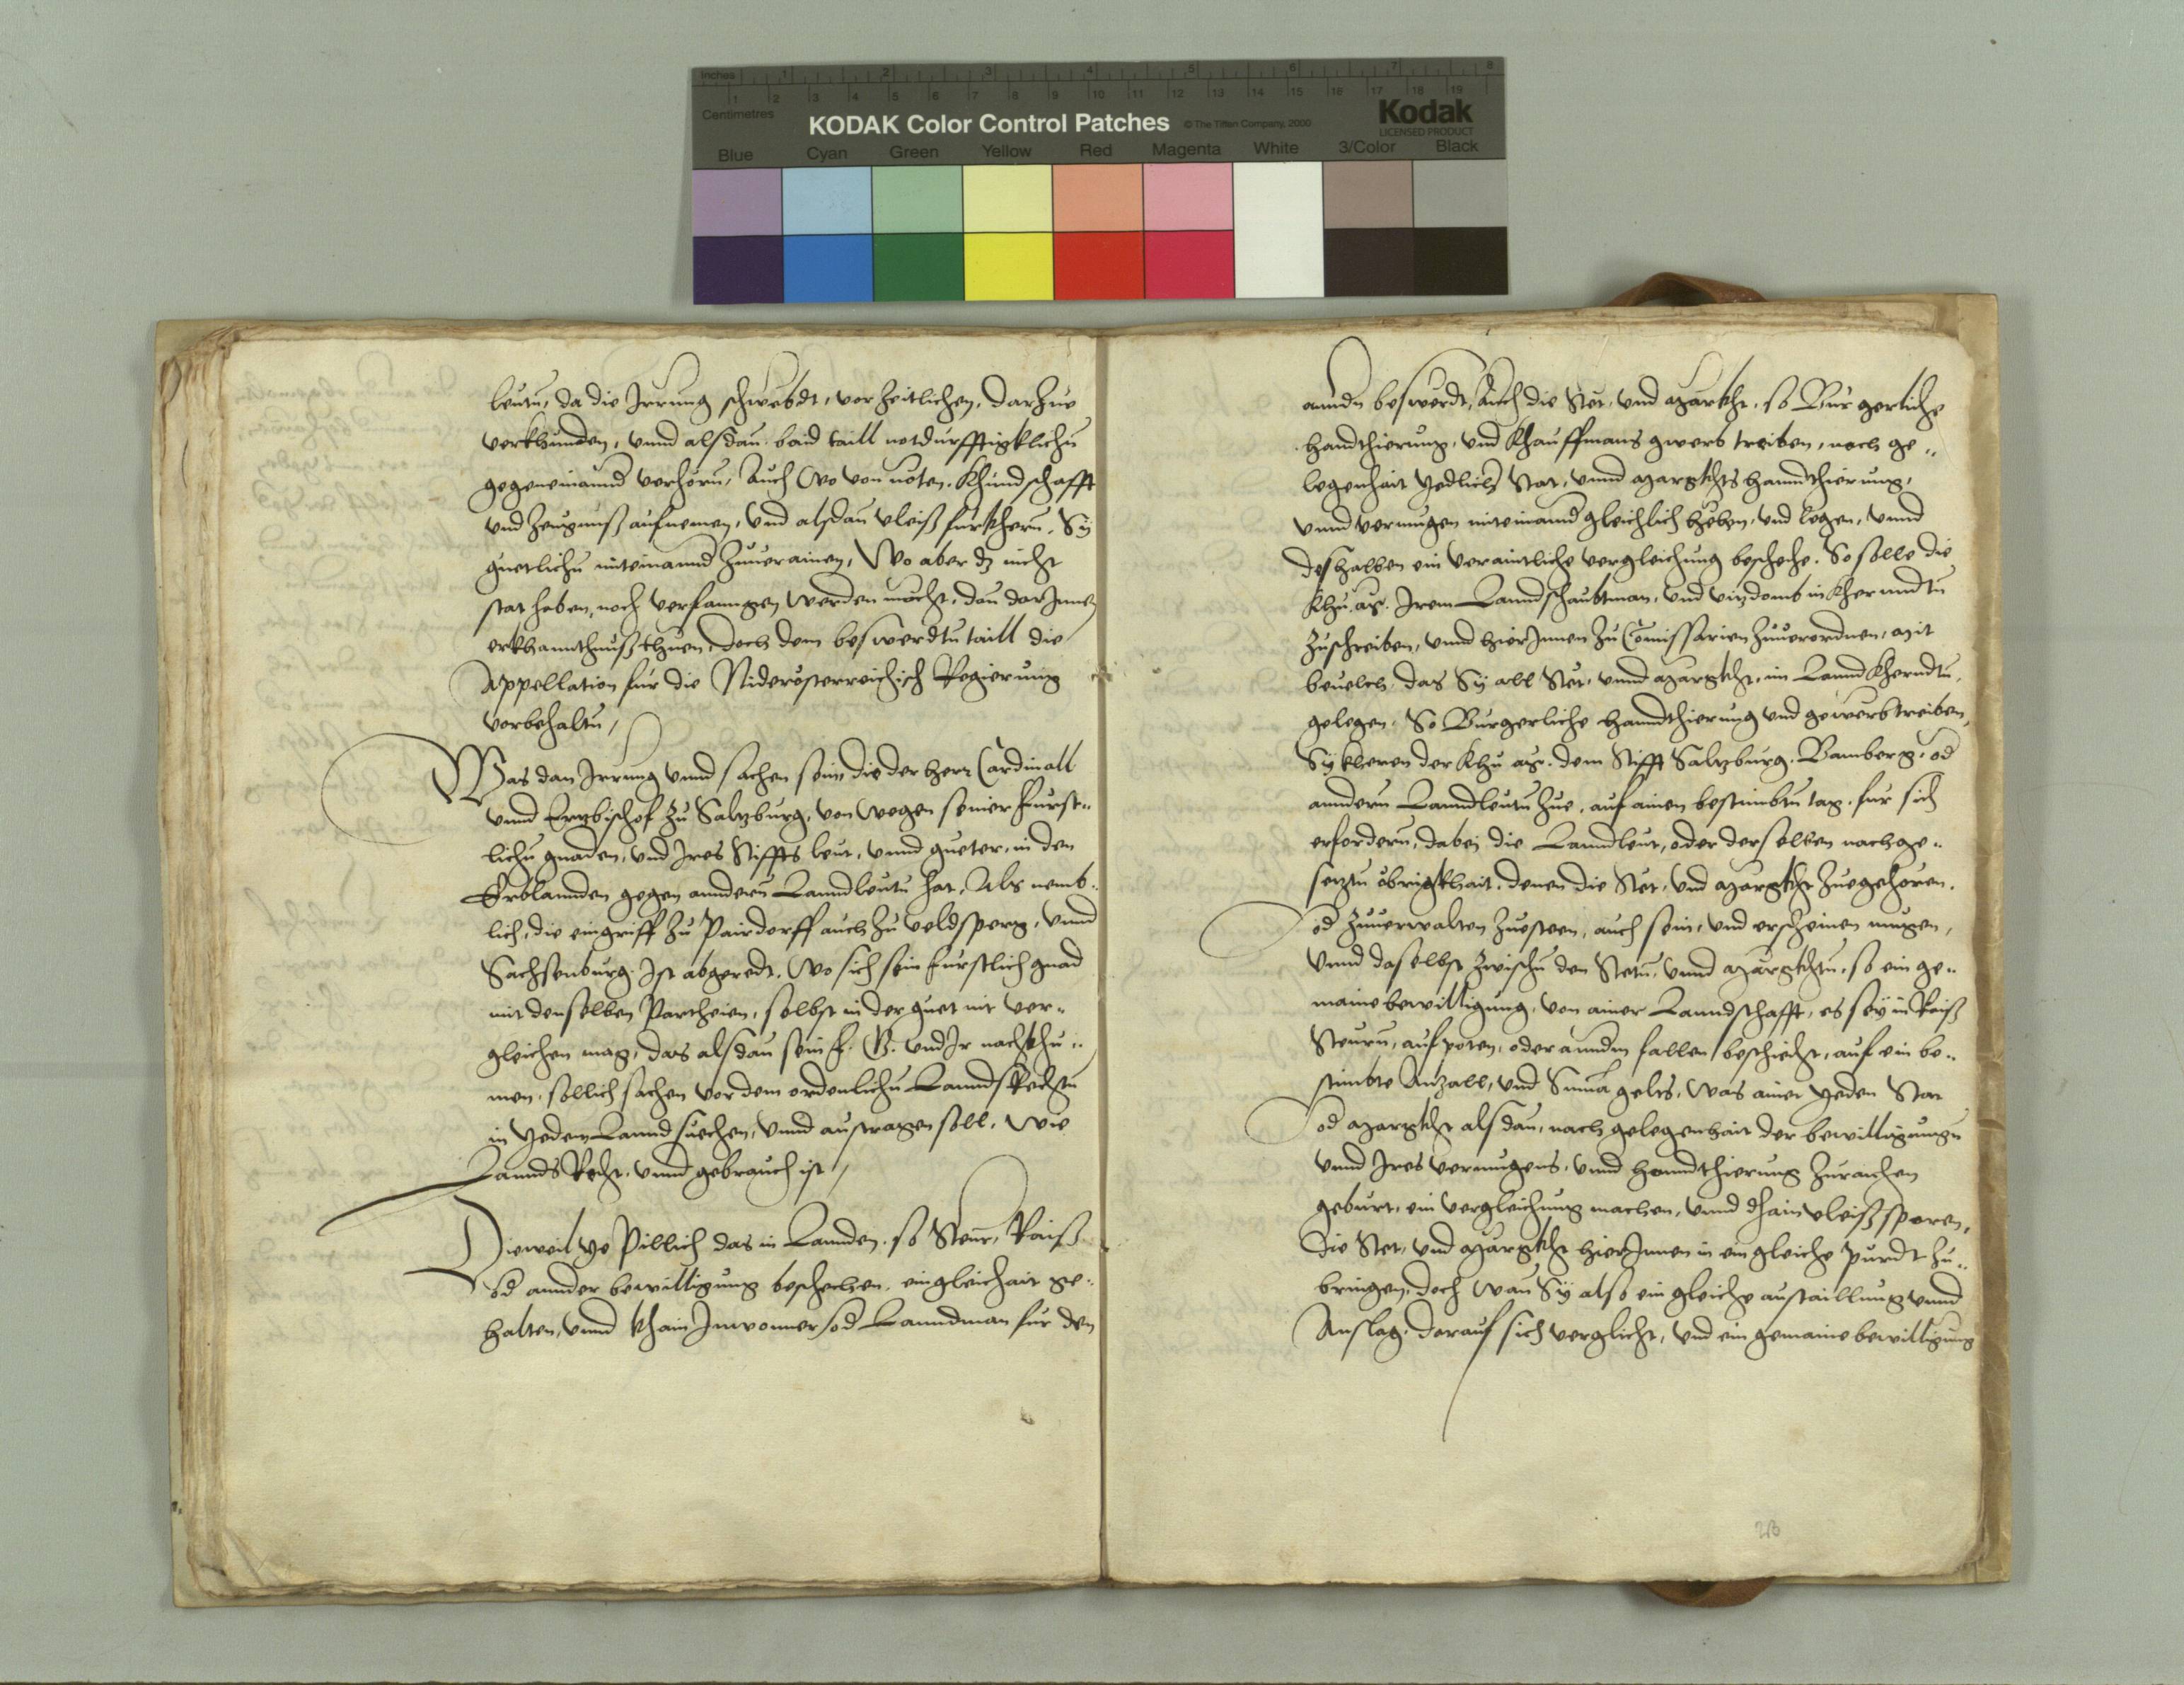 Inches 1 2 3 4 5 6 7 8
Centimetres 1 2 3 4 5 6 7 8 9 10 11 12 13 14 15 16 17 18 19
KODAK Color Control Patches © The Tiffen Company, 2000 Kodak
LICENSED PRODUCT
Blue Cyan Green Yellow Red Magenta White 3/Color Black
leutn, da die Irrung schwebdt, vor zeitlichen, darzue
verkhunden, vnnd alsdan baid taill notdurfftigklichn
gegeneinannd verhorn, Auch wo von nöten, Khundschafft
vnd Zeugnuß aufnemen, vnd alsdan vleiß furkhern, Sy
guetlichn miteinannd Zuuerainen, Wo aber dz nicht
stat haben, noch verfanngen werden mocht, dan darInnen
erkhanntnuß thuen, doch dem beswerdtn taill die
Appellation fur die Niderösterreichisch Regierung
vorbehaltn /
Was dan Irrung vnnd sachen sein die der herr Cardinall
vnnd Ertzbischof zu Saltzburg, von wegen seiner Furst¬
lichn gnaden, vnd Ires Stiffts leut, vnnd gueter, in den
Erblannden gegen anndern Lanndleutn hat, Als nemb¬
lich, die eingriff zu Pairdorff auch zu veldsperg, vnnd
Sachsenburg. Ist abgeredt, Wo sich sein furstlich gnad
mit denselben Partheien, selbst in der guet nit ver¬
gleichen mag, das alsdan sein f. G. vnd Ir nachkhu¬
men, sollich sachen vor dem ordenlichn Lanndsrechtn
in yedem Lannd suechen, vnnd austragen soll, Wie
Lannds Recht, vnnd gebrauch ist /
Dieweil ye Pillich das in Lannden, so Steur, Raiß
od annder bewilligung beschehen, ein gleichait ge¬
halten, vnnd khain Inwonner od Lanndman fur den
anndn beswerdt, Auch die Stet, vnd Marckht, so Burgerliche
handthierung, vnd Khauffmans gwerb treiben, nach ge¬
legenhait yedlichs Stat, vnnd Margkhts hanndthierung,
vnnd vermugen miteinannd gleichlich heben, vnd legen, vnnd
deshalben ein veraintliche vergleichung beschehe. So solle die
Khu. Mt. Irem Lanndshaubtman, vnd vitzdomb in Kherndtn
zuschreiben, vnnd hierInnen zu Comissarien Zuuerordnen, Mit
beuelch, das Sy all Stet, vnnd Margkht, im Lannd Kherndtn,
gelegen, So Burgerliche hanndthierung vnd gewerb treiben,
Sy kheren der Khu Mt. dem Stifft Saltzburg, Bamberg, od
anndern Lanndleutn Zue, auf ainen bestimbtn tag, fur sich
erfordern, dabei die Lanndleut, oder derselben nachge¬
setztn obrigkhait, denen die Stet, vnd Margkht Zuegehoren,
od Zuuerwalten Zuesteen, auch sein, vnd erscheinen mugen,
vnnd daselbst zwischn den Stetn, vnnd Margkhtn, so ein ge¬
maine bewilligung, von ainer Lanndschafft, es sey in Raiß
Steurn, aufpoten, oder anndn fallen beschiecht, auf ein be¬
stimbte Anzall, vnd Suma gelts, Was ainer yeden Stat
od Margkht alsdan, nach gelegenhait der bewilligungn
vnnd Ires vermugens, vnnd hanndthierung Zuraichen
geburt, ein vergleichung machen, vnnd khain vleiß sparen,
Die Stet, vnd Margkht hierInnen in ein gleiche purdt zu¬
bringen, doch wan Sy also ein gleiche austaillung vnnd
Anslag, darauf sich verglicht, vnd ein gemaine bewilligung